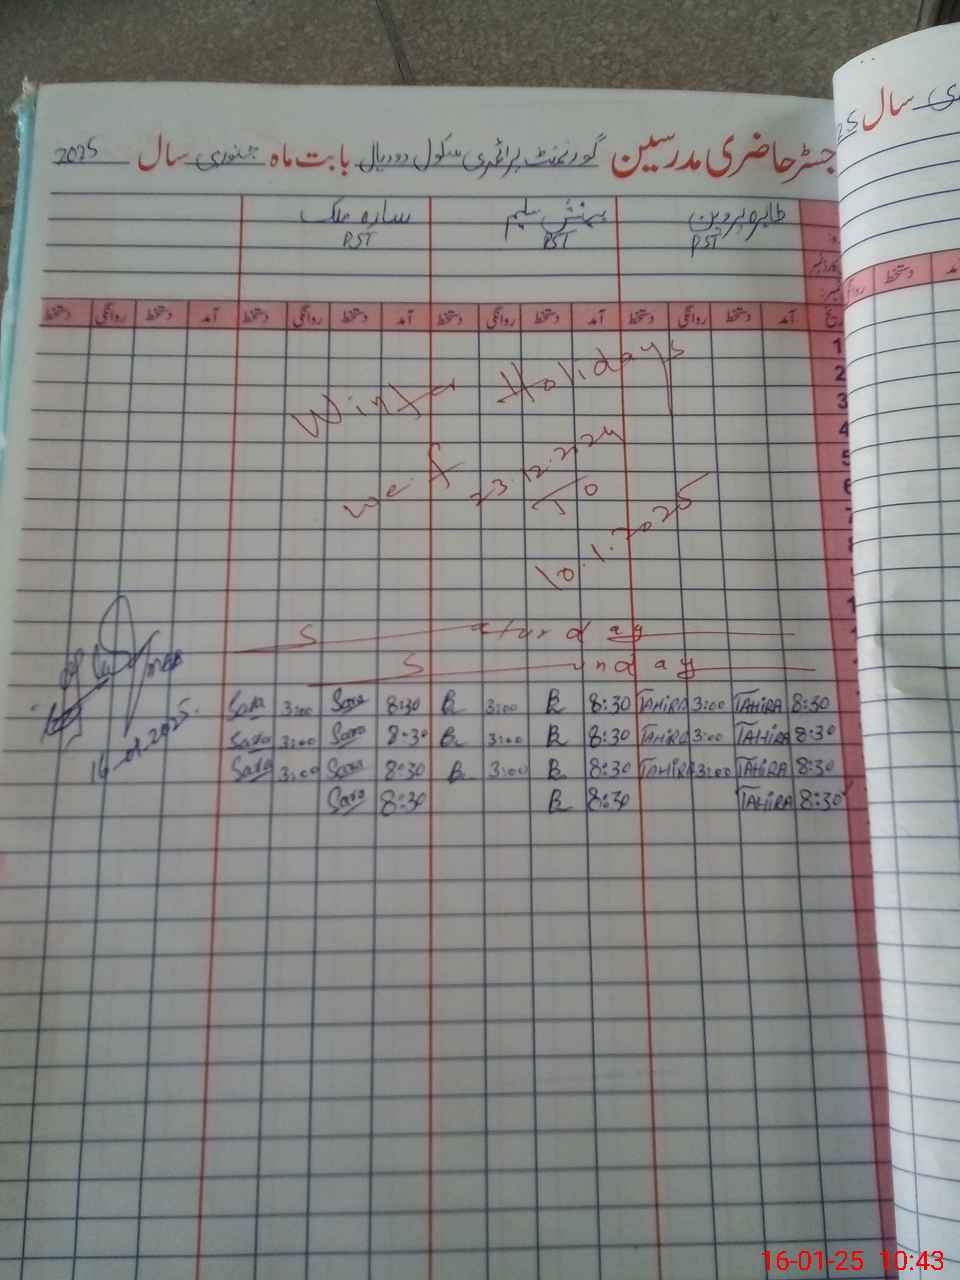 جسٹر حاضری مدرسین گورنمنٹ پرائمری سکول دودیال بابت ماہ جنوری سال 2025
سال
25
طاہرہ پروین بینش سلیم سارہ ملک
PST PST PST
آمد دستخط روانگی دستخط آمد دستخط روانگی دستخط آمد دستخط روانگی دستخط آمد دستخط روانگی دستخط
دستخط
1
2
3
4
5
6
Winter Holidays
w.e.f 23.12.2024
To
10.1.2025
Saturday
Sunday
8:30 TAHIRA 3:00 TAHIRA 8:30 B 3:00 B 8:30 Sara 3:00 Sara
8:30 TAHIRA 3:00 TAHIRA 8:30 B 3:00 B 8:30 Sara 3:00 Sara
8:30 TAHIRA 3:00 TAHIRA 8:30 B 3:00 B 8:30 Sara 3:00 Sara
8:30 TAHIRA 8:30 B 8:30 Sara
16-01-2025
16-01-25 10:43